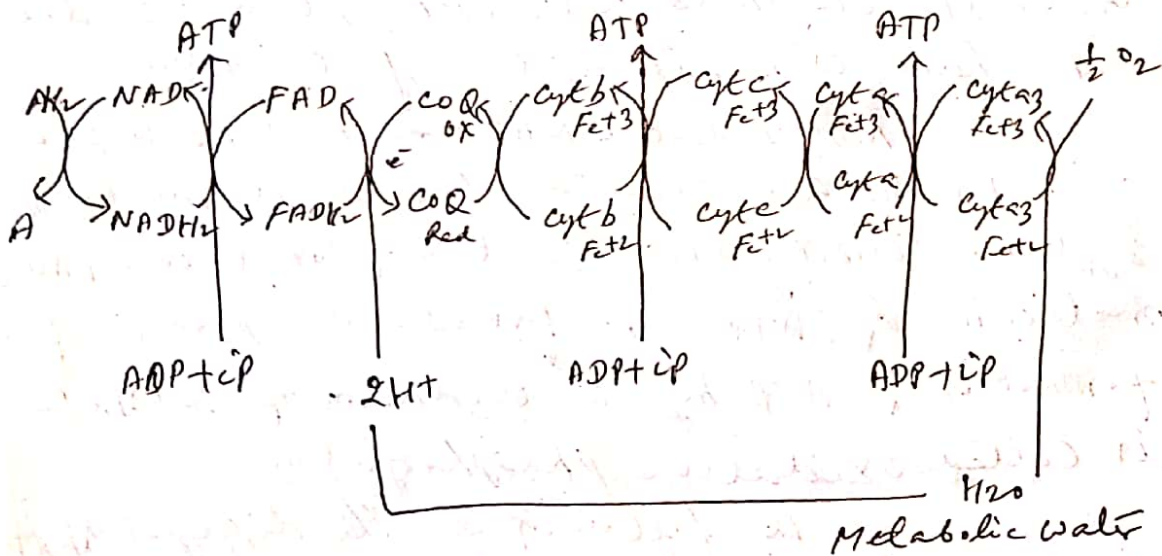 ATP ATP ATP
½ O2
AH2 NAD FAD CoQ ox Cyt b Fe+3 Cyt c Fe+3 Cyt a Fe+3 Cyt a3 Fe+3
e-
A NADH2 FADH2 CoQ Red Cyt b Fe+2 Cyt c Fe+2 Cyt a Fe+2 Cyt a3 Fe+2
ADP+iP ADP+iP ADP+iP
2H+
H2O
Metabolic water